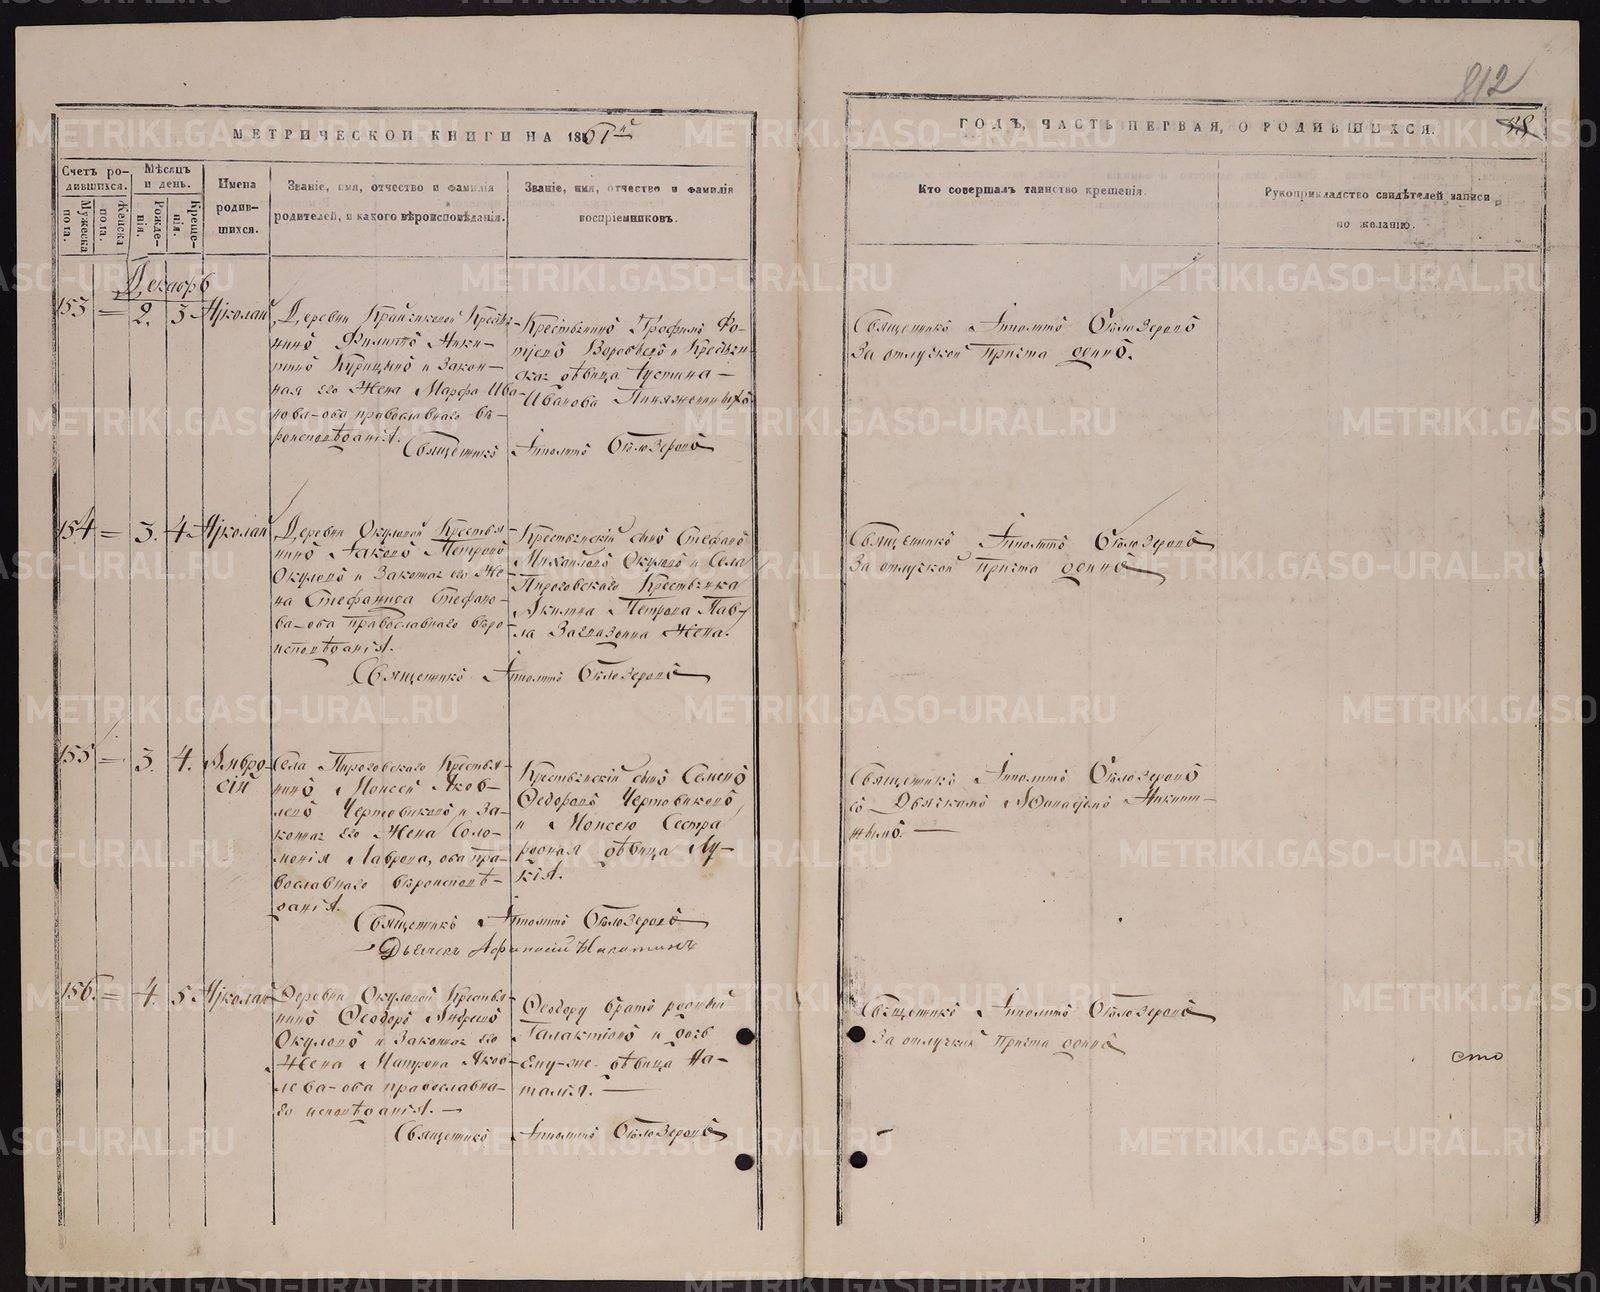 812
МЕТРИЧЕСКОЙ КНИГИ НА 1861й
ГОДЪ, ЧАСТЬ ПЕРВАЯ, О РОДИВШИХСЯ.
88
Счетъ ро-
дившихся.
Мужеска
пола.
Женска
пола.
Мѣсяцъ
и день.
Рожде-
нія.
Креще-
нія.
Имена
родив-
шихся.
Званіе, имя, отчество и фамилія
родителей, и какого вѣроисповѣданія.
Званіе, имя, отчество и фамилія
воспріемниковъ.
Кто совершалъ таинство крещенія.
Рукоприкладство свидѣтелей записи
по желанію.
Декабрь
153 = 2. 3 Николай
Деревни Крайчиковой Кресть-
янинъ Филиппъ Ники-
тинъ Курицынъ и Закон-
ная его Жена Марфа Ива-
нова-оба православнаго вѣ-
роисповѣданія.
Крестьянинъ Трофимъ Фо-
тіевъ Воробьевъ и Крестьян-
ская дѣвица Іустина
Иванова
Священникъ Іпполитъ Бѣлозеровъ
Священникъ Іпполитъ Бѣлозеровъ
За отлучкой Причта одинъ.
154 = 3. 4 Николай
Деревни Окуловой Крестья-
нинъ Іаковъ Петровъ
Окуловъ и Законная его Же-
на Стефанида Стефано-
ва-оба православнаго вѣро-
исповѣданія.
Крестьянскій сынъ Стефанъ
Михайловъ Окуловъ и Села
Пироговскаго Крестьянка
Акилина Петрова Пав-
ла Загваздина Жена.
Священникъ Іпполитъ Бѣлозеровъ
Священникъ Іпполитъ Бѣлозеровъ
За отлучкой Причта одинъ
155 = 3. 4. Амвро-
сій
Села Пироговскаго Крестья-
нинъ Моисей Яков-
левъ Чертовиковъ, и За-
конная его Жена Соло-
монія Лаврова, оба пра-
вославнаго вѣроисповѣ-
данія.
Крестьянскій сынъ Семенъ
Ѳедоровъ Чертовиковъ,
и Моисею Сестра
родная дѣвица Лу-
кія.
Священникъ Іпполитъ Бѣлозеровъ
Дьячекъ Афанасій Никитинъ
Священникъ Іпполитъ Бѣлозеровъ
съ Дьячкомъ Аѳанасіемъ Никити-
нымъ.
156. = 4. 5 Николай
Деревни Окуловой Крестья-
нинъ Ѳеодоръ Андреевъ
Окуловъ и Законная его
Жена Матрона Яков-
лева-оба православна-
го исповѣданія.
Ѳеодору братъ родный
Галактіонъ и дочь
Ему-же дѣвица На-
талія.
Священникъ Іпполитъ Бѣлозеровъ
Священникъ Іпполитъ Бѣлозеровъ
За отлучкой Причта одинъ
сто
METRIKI.GASO-URAL.RU